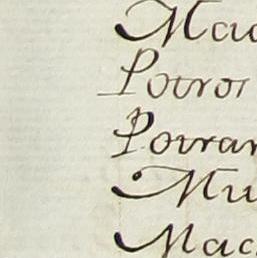 Mac
Potror
Potrar
Mu
Mac